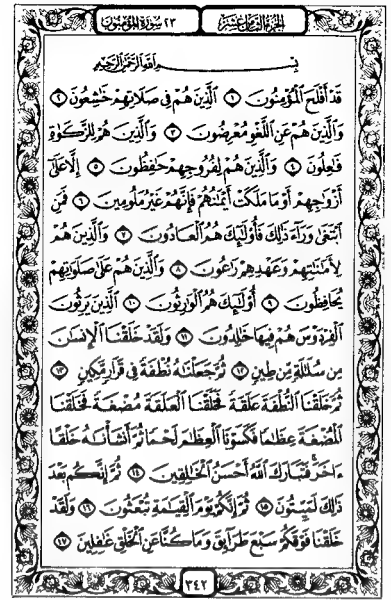 الجزء الثامن عشر
٢٣ سورة المؤمنون
بسم الله الرحمن الرحيم
قَدْ أَفْلَحَ ٱلْمُؤْمِنُونَ ١ ٱلَّذِينَ هُمْ فِى صَلَاتِهِمْ خَٰشِعُونَ ٢
وَٱلَّذِينَ هُمْ عَنِ ٱللَّغْوِ مُعْرِضُونَ ٣ وَٱلَّذِينَ هُمْ لِلزَّكَوٰةِ
فَٰعِلُونَ ٤ وَٱلَّذِينَ هُمْ لِفُرُوجِهِمْ حَٰفِظُونَ ٥ إِلَّا عَلَىٰٓ
أَزْوَٰجِهِمْ أَوْ مَا مَلَكَتْ أَيْمَٰنُهُمْ فَإِنَّهُمْ غَيْرُ مَلُومِينَ ٦ فَمَنِ
ٱبْتَغَىٰ وَرَآءَ ذَٰلِكَ فَأُو۟لَٰٓئِكَ هُمُ ٱلْعَادُونَ ٧ وَٱلَّذِينَ هُمْ
لِأَمَٰنَٰتِهِمْ وَعَهْدِهِمْ رَٰعُونَ ٨ وَٱلَّذِينَ هُمْ عَلَىٰ صَلَوَٰتِهِمْ
يُحَافِظُونَ ٩ أُو۟لَٰٓئِكَ هُمُ ٱلْوَٰرِثُونَ ١٠ ٱلَّذِينَ يَرِثُونَ
ٱلْفِرْدَوْسَ هُمْ فِيهَا خَٰلِدُونَ ١١ وَلَقَدْ خَلَقْنَا ٱلْإِنسَٰنَ
مِن سُلَٰلَةٍ مِّن طِينٍ ١٢ ثُمَّ جَعَلْنَٰهُ نُطْفَةً فِى قَرَارٍ مَّكِينٍ ١٣
ثُمَّ خَلَقْنَا ٱلنُّطْفَةَ عَلَقَةً فَخَلَقْنَا ٱلْعَلَقَةَ مُضْغَةً فَخَلَقْنَا
ٱلْمُضْغَةَ عِظَٰمًا فَكَسَوْنَا ٱلْعِظَٰمَ لَحْمًا ثُمَّ أَنشَأْنَٰهُ خَلْقًا
ءَاخَرَ فَتَبَارَكَ ٱللَّهُ أَحْسَنُ ٱلْخَٰلِقِينَ ١٤ ثُمَّ إِنَّكُم بَعْدَ
ذَٰلِكَ لَمَيِّتُونَ ١٥ ثُمَّ إِنَّكُمْ يَوْمَ ٱلْقِيَٰمَةِ تُبْعَثُونَ ١٦ وَلَقَدْ
خَلَقْنَا فَوْقَكُمْ سَبْعَ طَرَآئِقَ وَمَا كُنَّا عَنِ ٱلْخَلْقِ غَٰفِلِينَ ١٧
٣٤٢